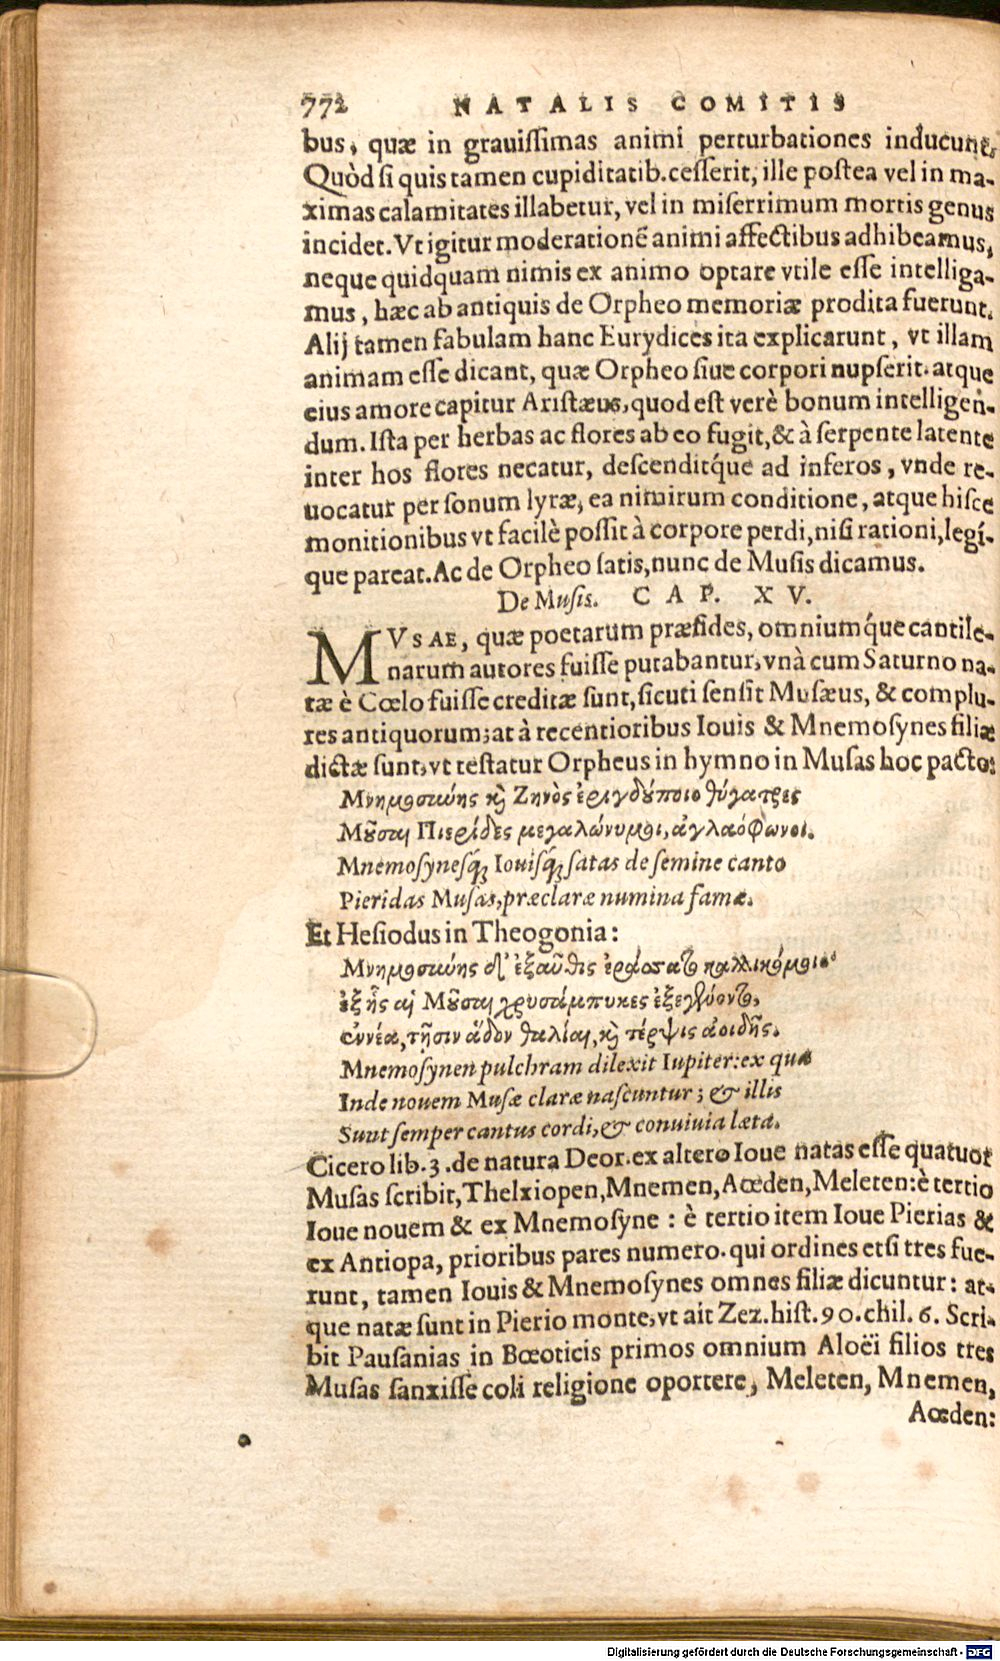 772 NATALIS COMITIS
bus, quæ in grauiſſimas animi perturbationes inducunt.
Quòd ſi quis tamen cupiditatib. ceſſerit, ille poſtea vel in ma-
ximas calamitates illabetur, vel in miſerrimum mortis genus
incidet. Vt igitur moderationē animi affectibus adhibeamus,
neque quidquam nimis ex animo optare vtile eſſe intelliga-
mus, hæc ab antiquis de Orpheo memoriæ prodita fuerunt.
Alij tamen fabulam hanc Eurydices ita explicarunt, vt illam
animam eſſe dicant, quæ Orpheo ſiue corpori nupſerit. atque
eius amore capitur Ariſtæus, quod eſt verè bonum intelligen-
dum. Iſta per herbas ac flores ab eo fugit, & à ſerpente latente
inter hos flores necatur, deſcenditq́ue ad inferos, vnde re-
uocatur per ſonum lyræ, ea nimirum conditione, atque hiſce
monitionibus vt facilè poſſit à corpore perdi, niſi rationi, legí-
que pareat. Ac de Orpheo ſatis, nunc de Muſis dicamus.
De Muſis. CAP. XV.
MVSAE, quæ poetarum præſides, omniumq́ue cantile-
narum autores fuiſſe putabantur, vnà cum Saturno na-
tæ è Cœlo fuiſſe creditæ ſunt, ſicuti ſenſit Muſæus, & complu-
res antiquorum; at à recentioribus Iouis & Mnemoſynes filiæ
dictæ ſunt, vt teſtatur Orpheus in hymno in Muſas hoc pacto:
Μνημοσύνης καὶ Ζηνὸς ἐριγδούποιο θύγατρες
Μοῦσαι Πιερίδες μεγαλώνυμοι, ἀγλαόφωνοι.
Mnemoſynesq́; Iouisq́; ſatas de ſemine canto
Pieridas Muſas, præclaræ numina famæ.
Et Heſiodus in Theogonia:
Μνημοσύνης δ' ἐξαῦθις ἐράσσατο καλλικόμοιο
ἐξ ἧς αἱ Μοῦσαι χρυσάμπυκες ἐξεγένοντο,
ἐννέα, τῇσιν ἅδον θαλίαι, καὶ τέρψις ἀοιδῆς.
Mnemoſynen pulchram dilexit Iupiter: ex qua
Inde nouem Muſæ claræ naſcuntur; & illis
Sunt ſemper cantus cordi, & conuiuia læta.
Cicero lib. 3. de natura Deor. ex altero Ioue natas eſſe quatuor
Muſas ſcribit, Thelxiopen, Mnemen, Aœden, Meleten: è tertio
Ioue nouem & ex Mnemoſyne: è tertio item Ioue Pierias &
ex Antiopa, prioribus pares numero. qui ordines etſi tres fue-
runt, tamen Iouis & Mnemoſynes omnes filiæ dicuntur: at-
que natæ ſunt in Pierio monte, vt ait Zez. hiſt. 90. chil. 6. Scri-
bit Pauſanias in Bœoticis primos omnium Aloëi filios tres
Muſas ſanxiſſe coli religione oportere, Meleten, Mnemen,
Aœden:
Digitalisierung gefördert durch die Deutsche Forschungsgemeinschaft - DFG